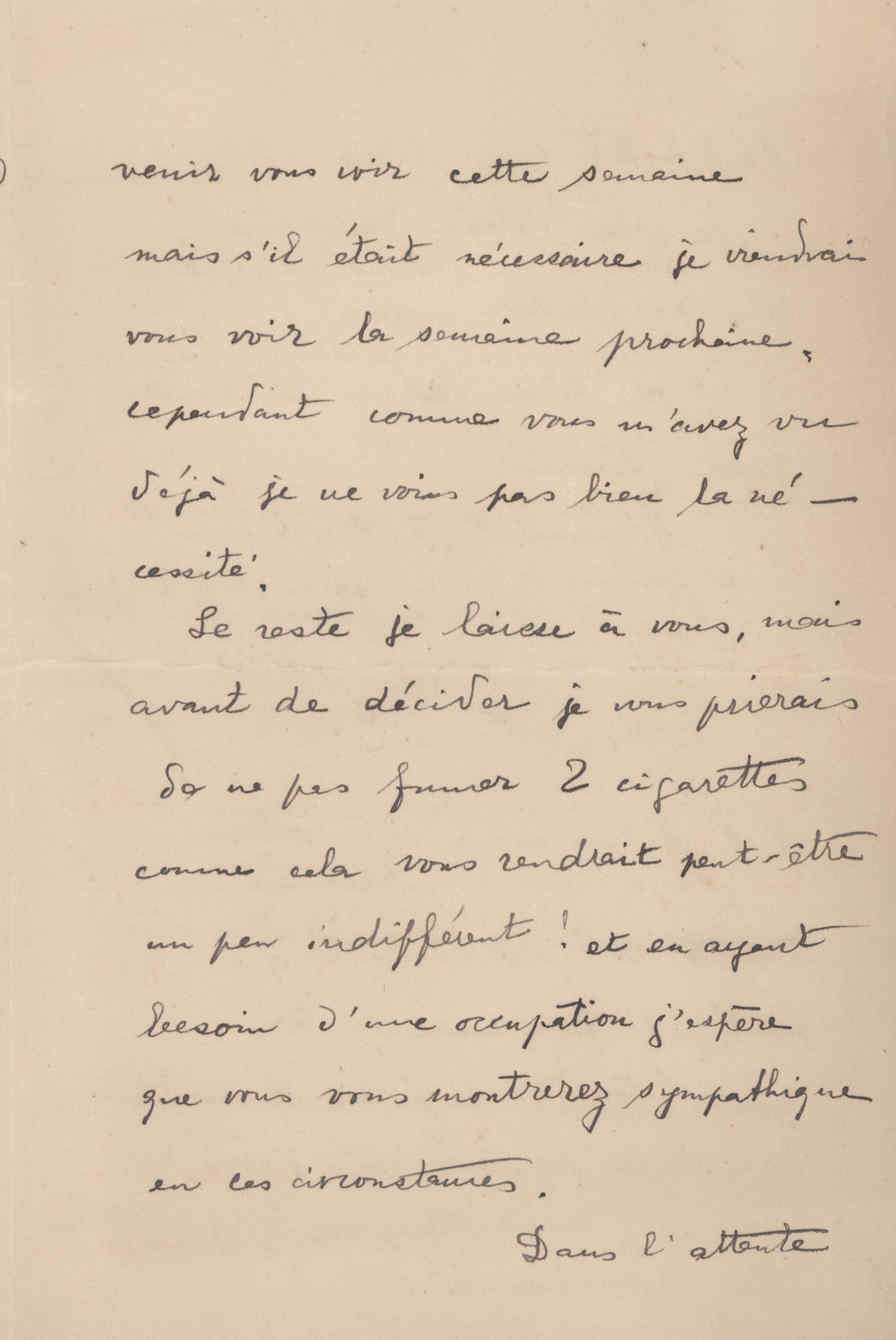 venir vous voir cette semaine
mais s'il était nécessaire je viendrai
vous voir la semaine prochaine,
cependant comme vous m'avez vu
déjà je ne vois pas bien la né-
cessité.
Le reste je laisse à vous, mais
avant de décider je vous prierais
de ne pas fumer 2 cigarettes
comme cela vous rendrait peut-être
un peu indifférent ! et en ayant
besoin d'une occupation j'espère
que vous vous montrerez sympathique
en ces circonstances.
Dans l'attente